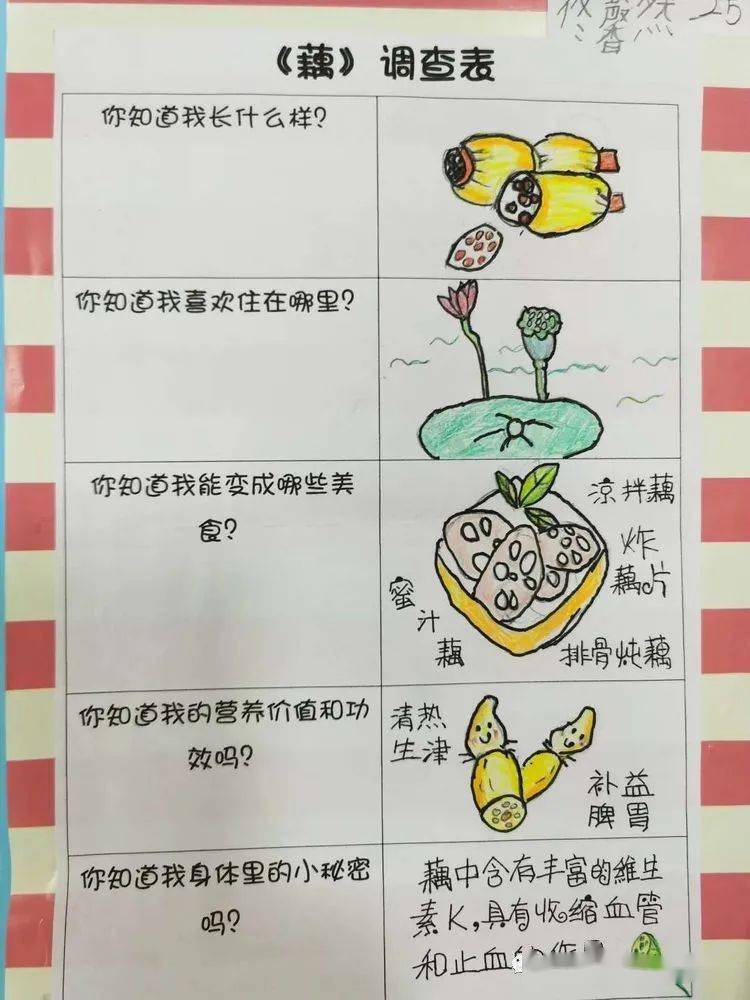 然 25
《藕》调查表
你知道我长什么样?
你知道我喜欢住在哪里?
你知道我能变成哪些美
食?
凉拌藕
炸
藕片
蜜
汁
藕
排骨炖藕
你知道我的营养价值和功
效吗?
清热
生津
补益
脾胃
你知道我身体里的小秘密
吗?
藕中含有丰富的維生
素K,具有收缩血管
和止血的作